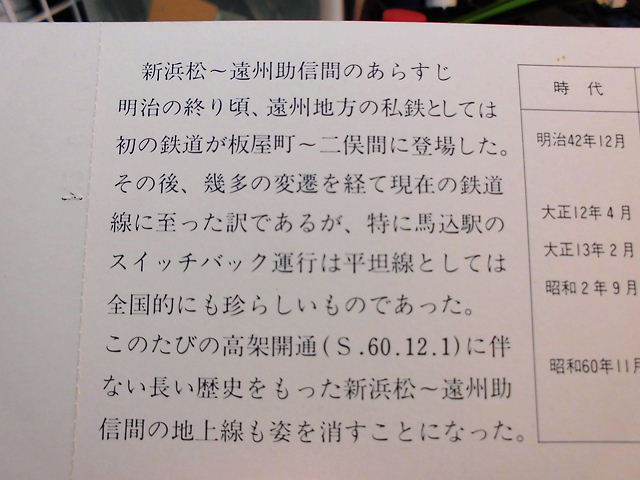 新浜松～遠州助信間のあらすじ
明治の終り頃、遠州地方の私鉄としては
初の鉄道が板屋町～二俣間に登場した。
その後、幾多の変遷を経て現在の鉄道
線に至った訳であるが、特に馬込駅の
スイッチバック運行は平坦線としては
全国的にも珍らしいものであった。
このたびの高架開通(S.60.12.1)に伴
ない長い歴史をもった新浜松～遠州助
信間の地上線も姿を消すことになった。
時代
明治42年12月
大正12年4月
大正13年2月
昭和2年9月
昭和60年11月